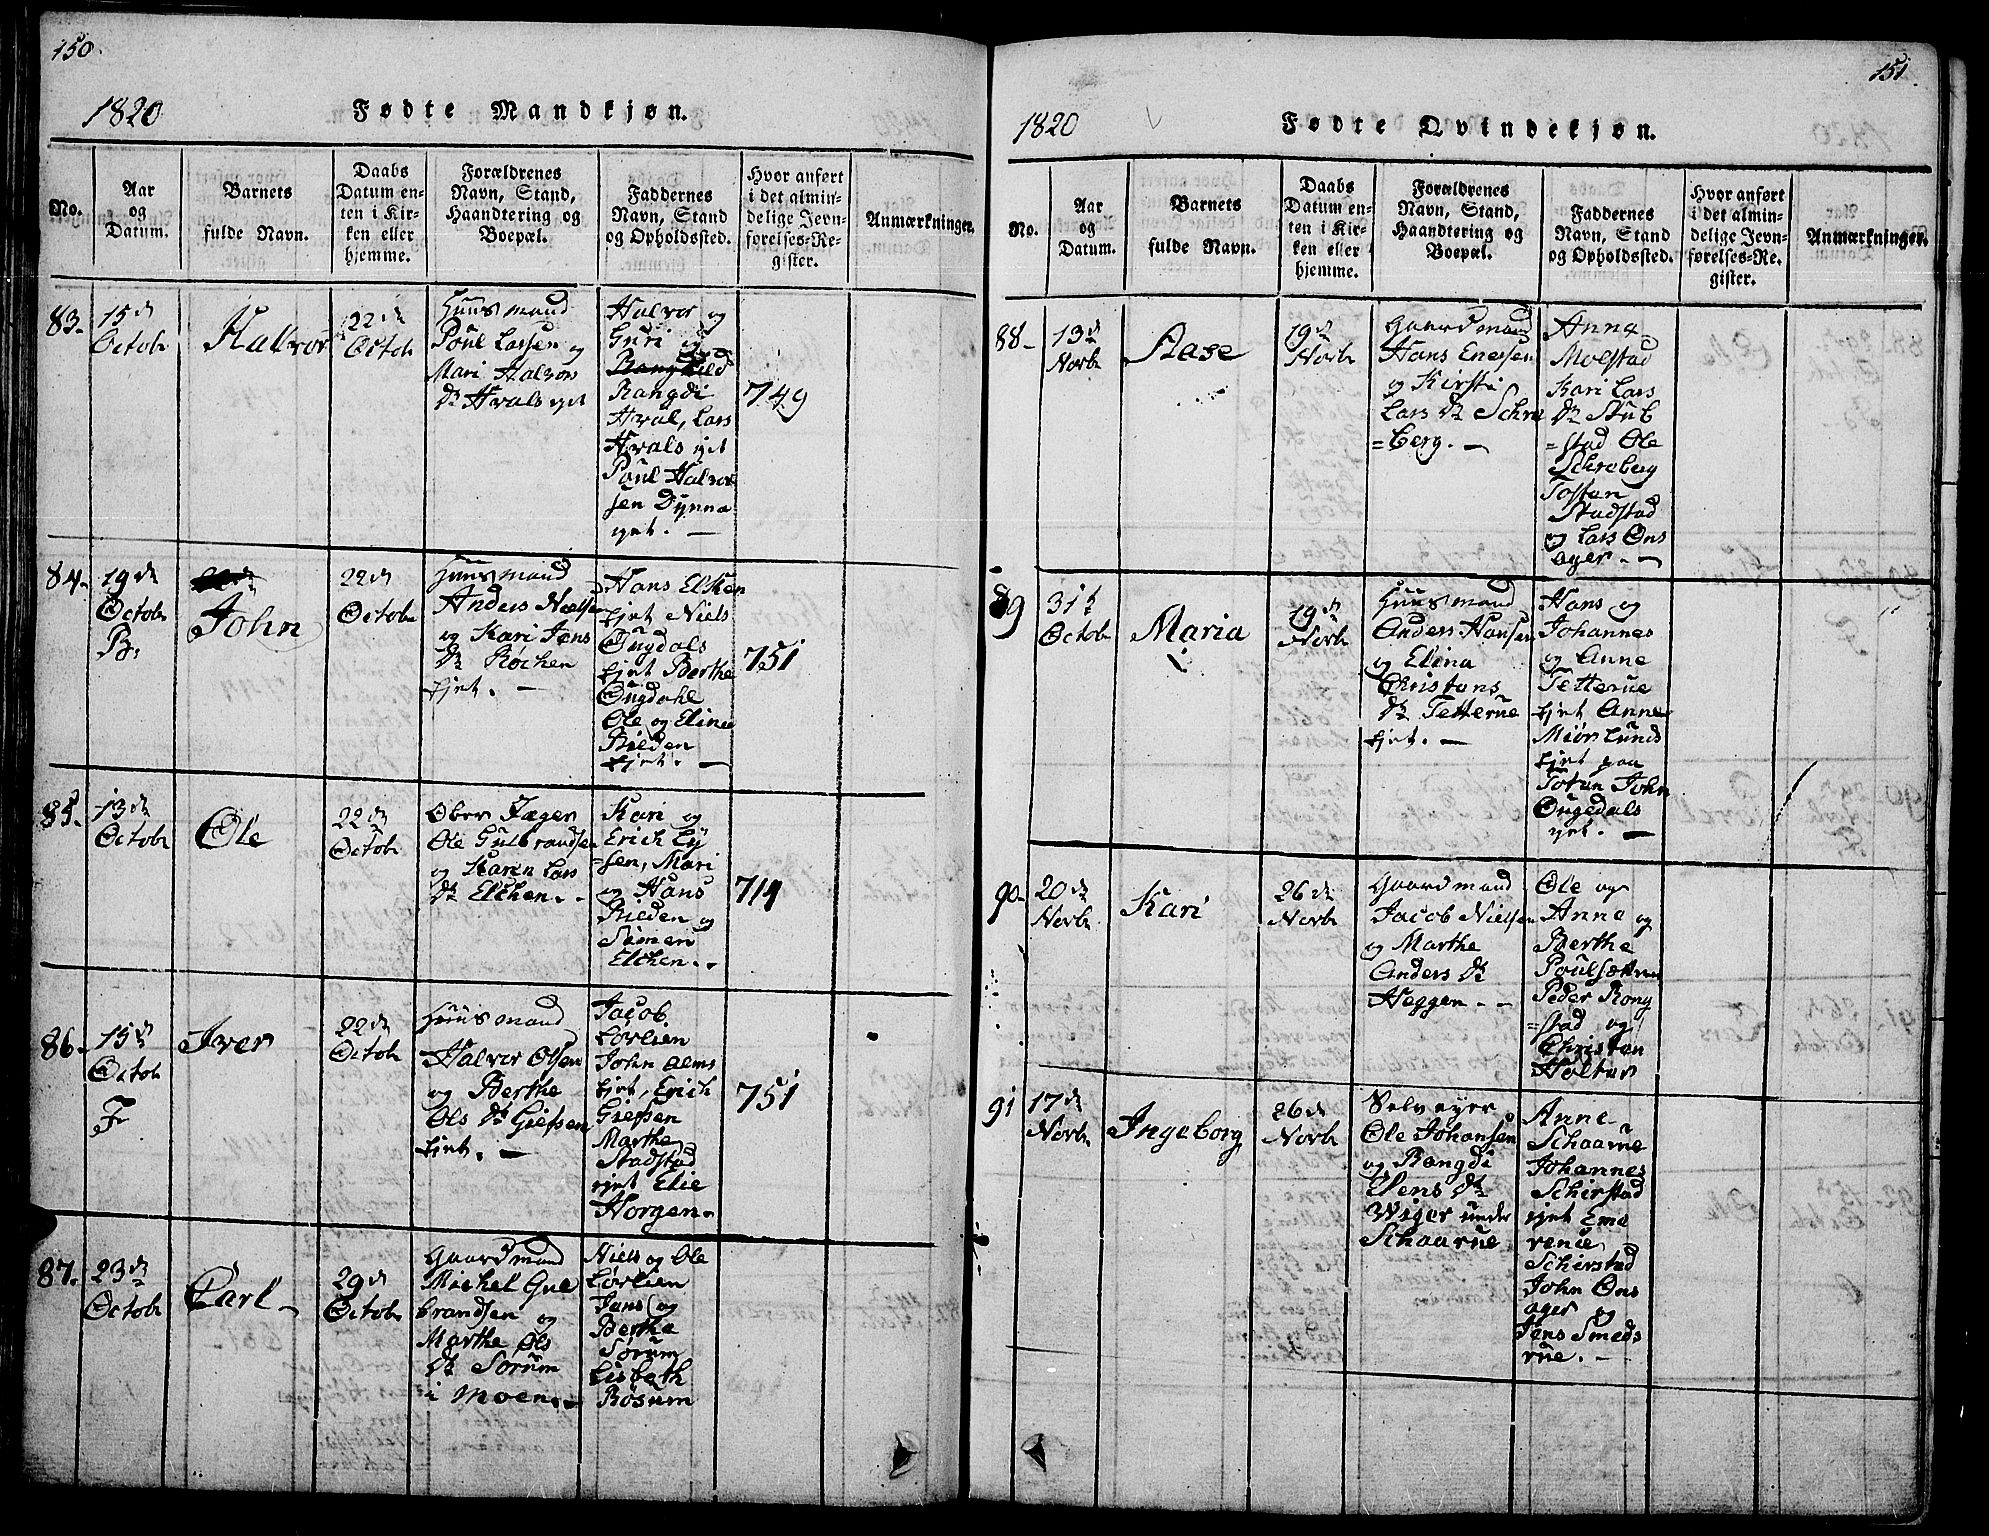 150.
1820
Fødte Mandkjøn.
No.
Aar
og
Datum.
Barnets
fulde Navn.
Daabs
Datum en-
ten i Kir-
ken eller
hjemme.
Forældrenes
Navn, Stand,
Haandtering og
Boepæl.
Faddernes
Navn, Stand
og Opholdssted.
Hvor anført
i det almin-
delige Jevn-
førelses-Re-
gister.
Anmærkninger.
83.
15d
Octob
Halvor
22d
Octob
Huusmand
Poul Larsen og
Mari Halvors
dr Hvals ejet
Halvor og
Guri og
Ranghild
Rangdi
Hval, Lars
Hvals ejet
Poul Halvor
sen Dynna
ejet. —
749
84.
19d
Octob
B.
John
22d
Octob
Huusmand
Anders Nielsen
og Kari Jens
dr Röchen
Ejet. —
Hans Elken
Ejet Niels
Ougdals
Ejet Berthe
Ougdahl
Ole og Eline
Bilden
Ejet. —
751
85.
13d
Octob
Ole
22d
Octob
Ober Jæger
Ole Gulbrandsen
og Karen Lars
dr Elchen..
Kari og
Erich Ey
=sen, Mari
og Hans
Bilden og
Simen
Elchen..
714
86.
15d
Octob
F
Iver
22d
Octob
Huusmand
Halvor Olsen
og Berthe
Ols dr Giefsen
Ejet. —
Jacob
Lörlien
John Alms
Ejet, Erich
Giefsen
Marthe
Stadstad
ejet Elie
Horgen.
751
87.
23d
Octob
Carl
29d
Octob
Gaardmand
Michel Gul
brandsen og
Marthe Ols
dr Sorum
i Moen.
Niels og Ole
Lörlien
Jens og
Berthe
Sorum
Lisbeth
Rösum
151
1820
Fødte Qvindekjøn.
No.
Aar
og
Datum.
Barnets
fulde Navn.
Daabs
Datum en-
ten i Kir-
ken eller
hjemme.
Forældrenes
Navn, Stand,
Haandtering og
Boepæl.
Faddernes
Navn, Stand
og Opholdssted.
Hvor anført
i det almin-
delige Jevn-
førelses-Re-
gister.
Anmærkninger.
88
13d
Novb
Aase
19d
Novb
Gaardmand
Hans Enersen
og Kirsti
Lars dr Schre
=berg. —
Anna
Molstad
Kari Lars
dr Stub
=stad Ole
Schreberg
Tostan
Stadstad
og Lars Ons
ager. —
89
31t
Octob
Maria
19d
Novb
Huusmand
Anders Hansen
og Elina
Christans
dr Tetterue
Ejet. —
Hans og
Johannes
og Anne
Tetterue
Ejet Anne
Miörlunds
Ejet paa
Toten John
Ougedals
ejet. —
90
20d
Novb
Kari
26d
Novb
Gaardmand
Jacob Nielsen
og Marthe
Anders dr
Heggen - -
Ole og
Anne og
Berthe
Poulsættren
Peder Rong
=stad og
Christen
Holter
91
17d
Novb
Ingeborg
26d
Novb
Selveyer
Ole Johansen
og Rangdi
Elens dr
Wiger under
Schaarue
Anne
Schaarue
Johannes
Schirstad
ejet Eme
rense
Schirstad
John Ons
ager og
Jens Smeds
rue. —